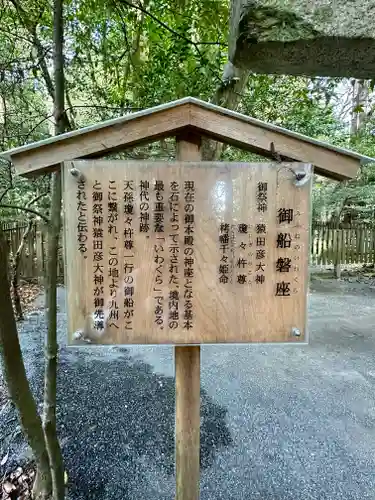 御船磐座
みふねいわくら
御祭神　猿田彦大神
瓊々杵尊
栲幡千々姫命
現在の御本殿の神座となる基本
を石によって示された、境内地の
最も重要な「いわくら」である。
神代の神跡。
天孫瓊々杵尊一行の御船がこ
こに繋がれ、この地より九州へ
と御祭神猿田彦大神が御先導
されたと伝わる。